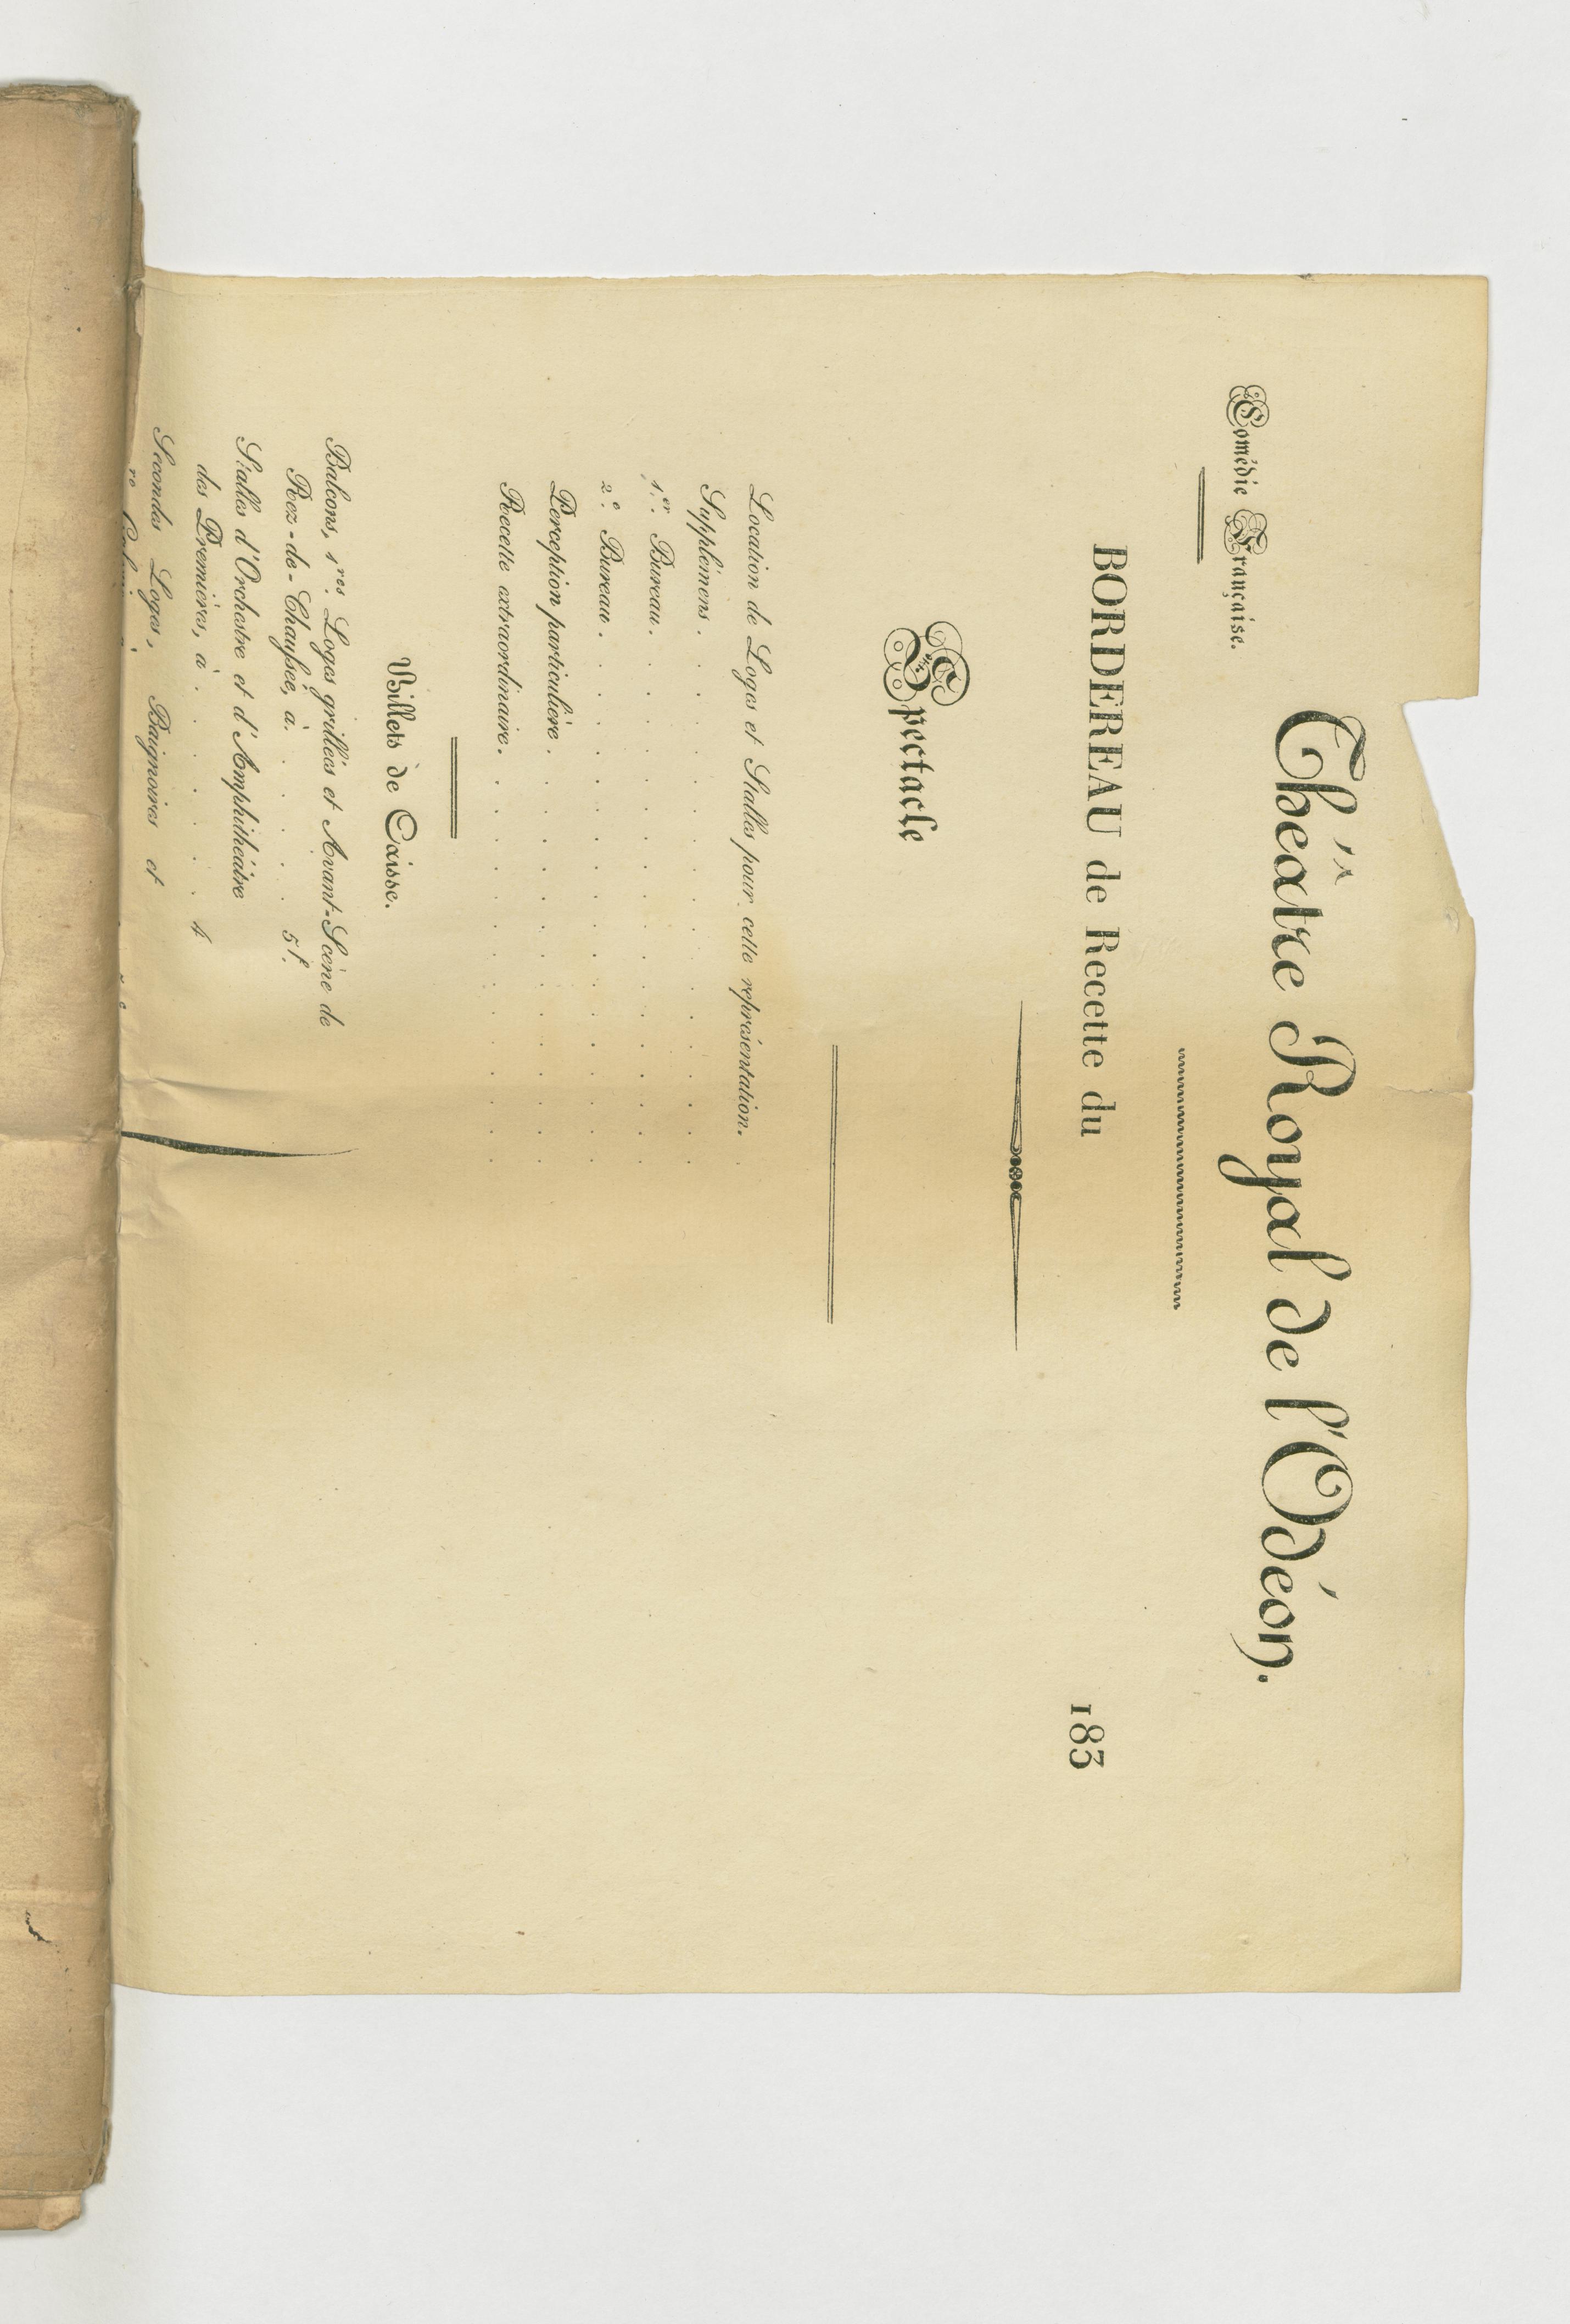 Théâtre Royal de l'Odéon.
Comédie Française.
BORDEREAU de Recette du 183
Spectacle
Location de Loges et Stalles pour cette représentation.
Supplémens.
1.er Bureau.
2.e Bureau.
Perception particulière.
Recette extraordinaire.
Billets de Caisse.
Balcons, 1.res Loges grillées et Avant-Scène de
Rez-de-Chaussée, à. 5 f.
Stalles d'Orchestre et d'Amphithéâtre
des Premières, à. 4
Secondes Loges, Baignoires et